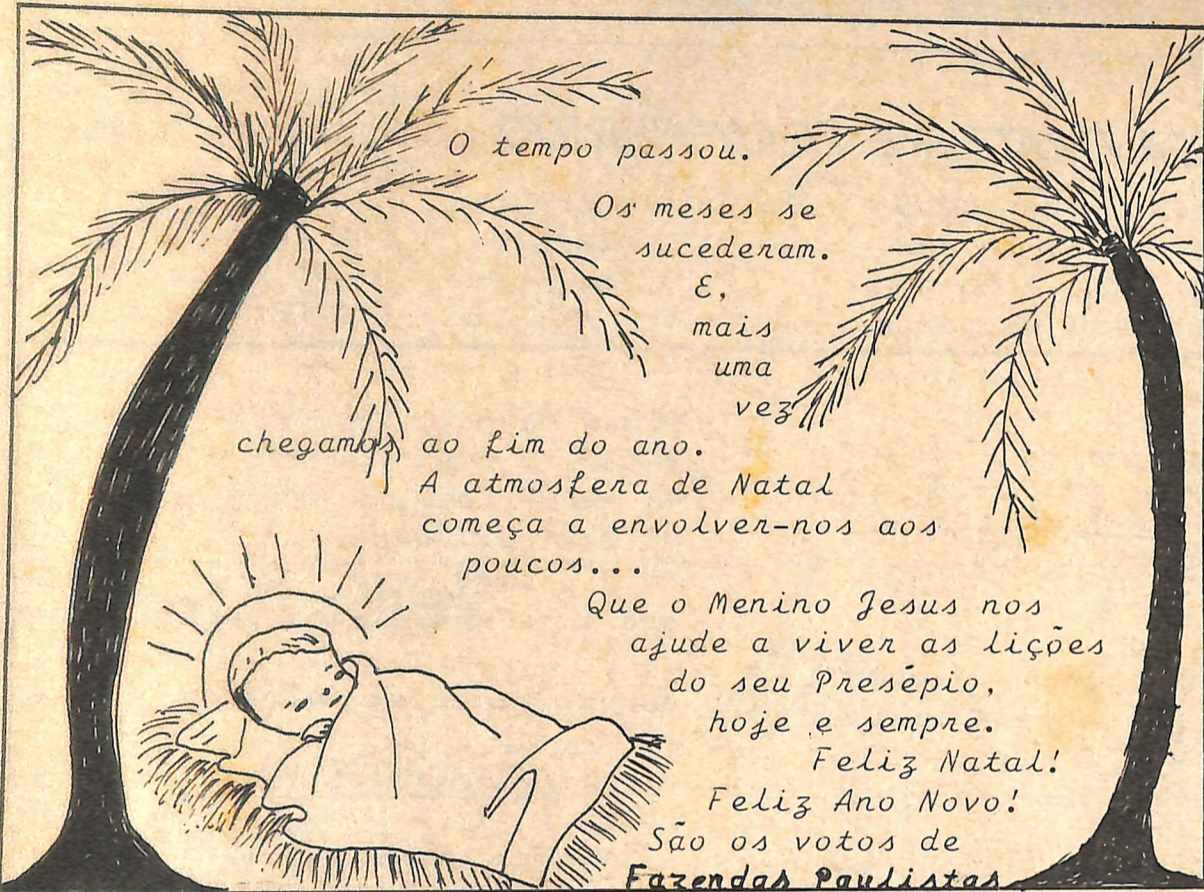 O tempo passou.
Os meses se
sucederam.
E,
mais
uma
vez
chegamos ao fim do ano.
A atmosfera de Natal
começa a envolver-nos aos
poucos...
Que o Menino Jesus nos
ajude a viver as lições
do seu Presépio,
hoje e sempre.
Feliz Natal!
Feliz Ano Novo!
São os votos de
Fazendas Paulistas